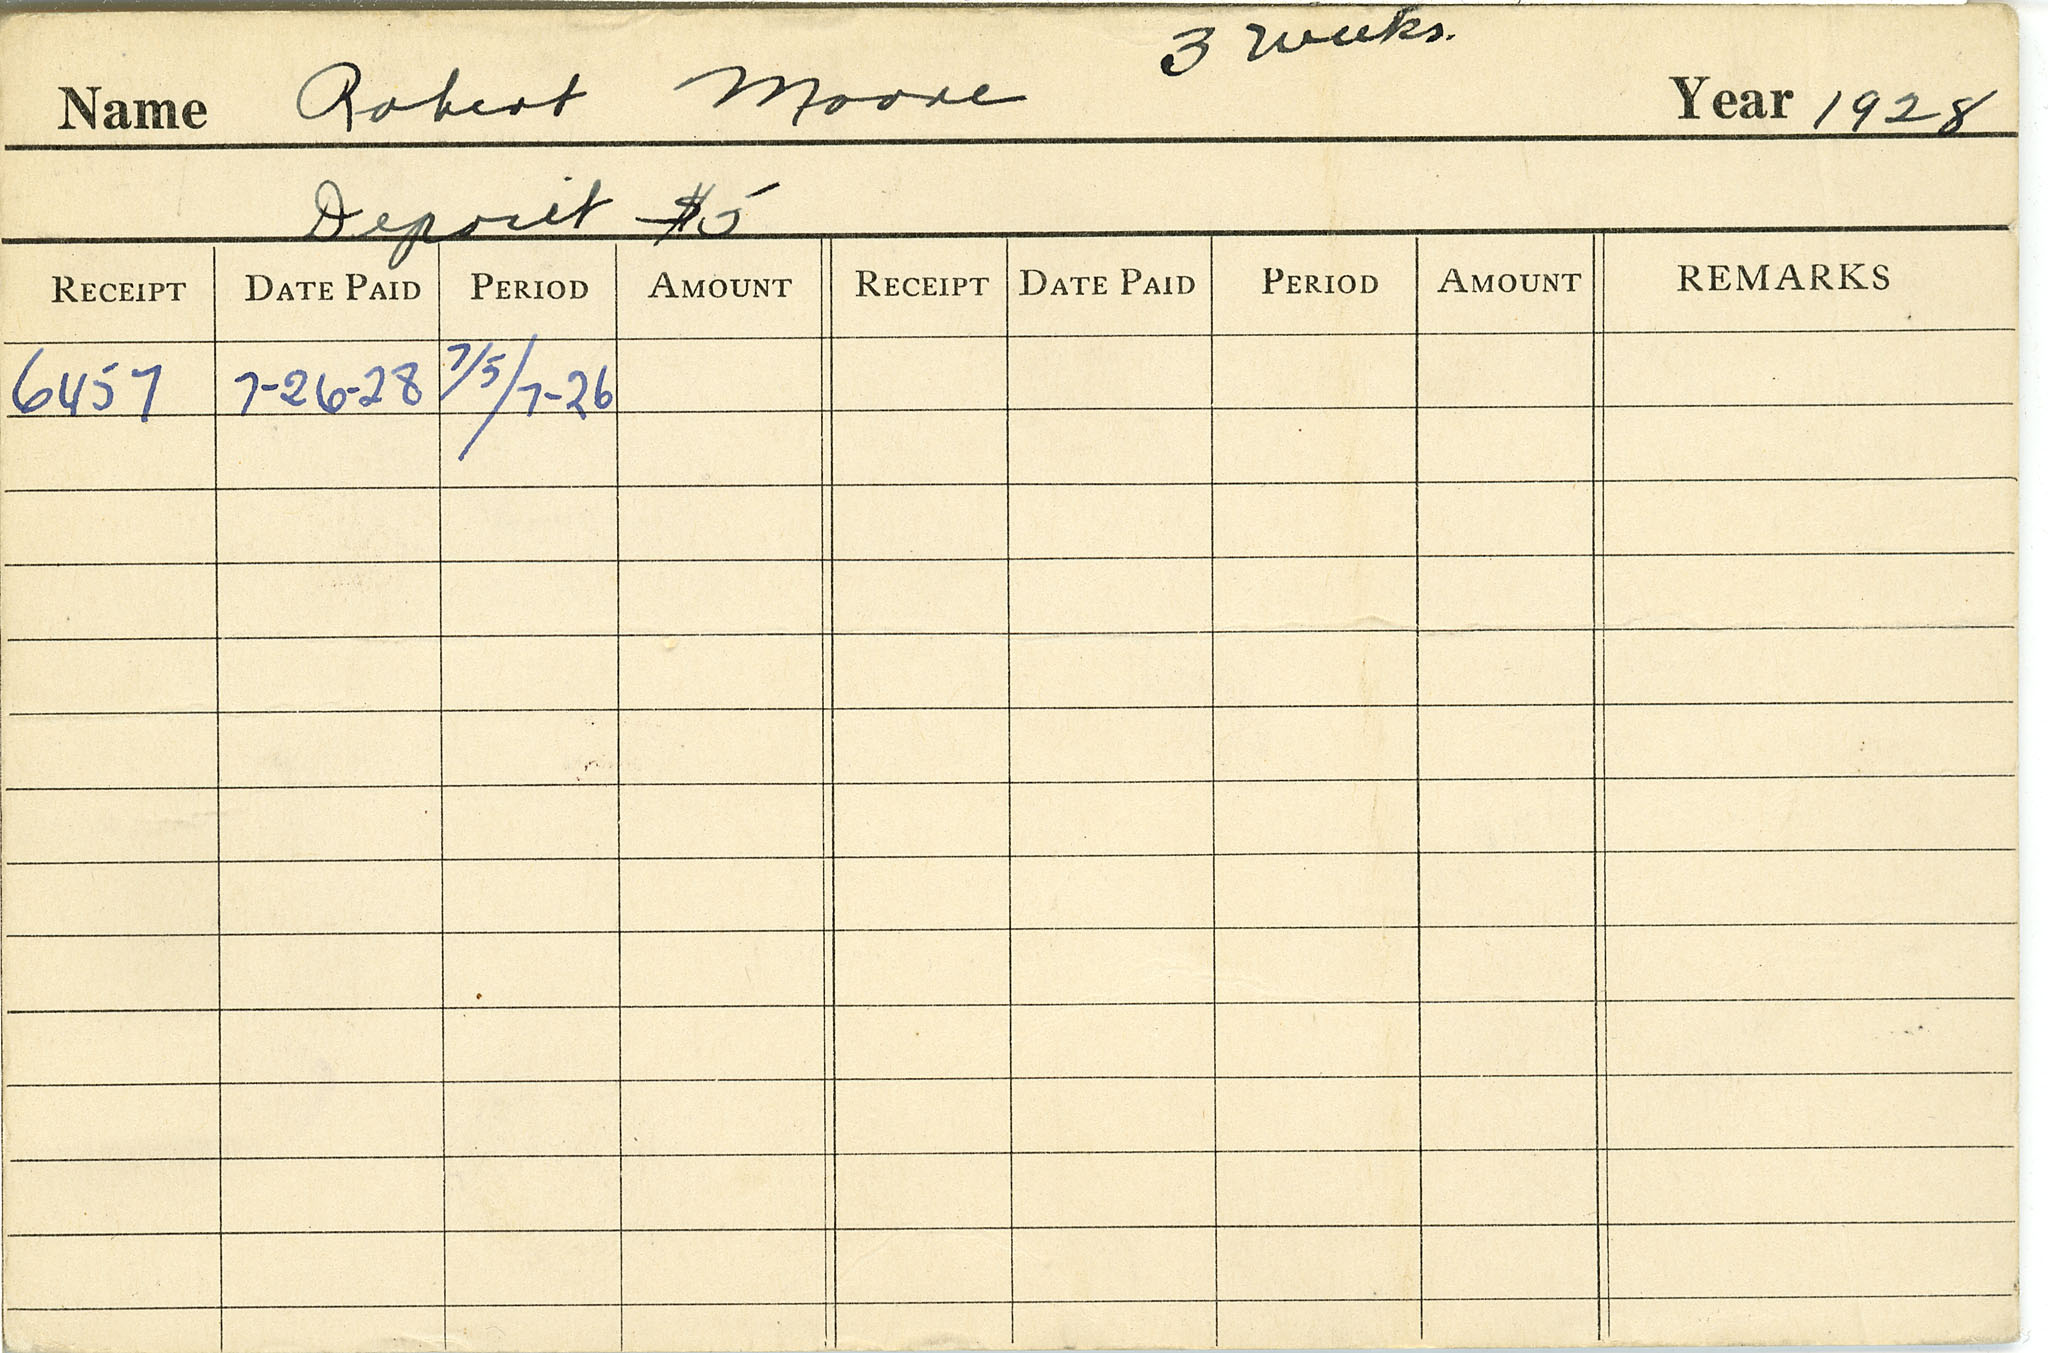 3 weeks.
Name Robert Moore Year 1928
Deposit $5
RECEIPT DATE PAID PERIOD AMOUNT RECEIPT DATE PAID PERIOD AMOUNT REMARKS
6457 7-26-28 7/5/7-26